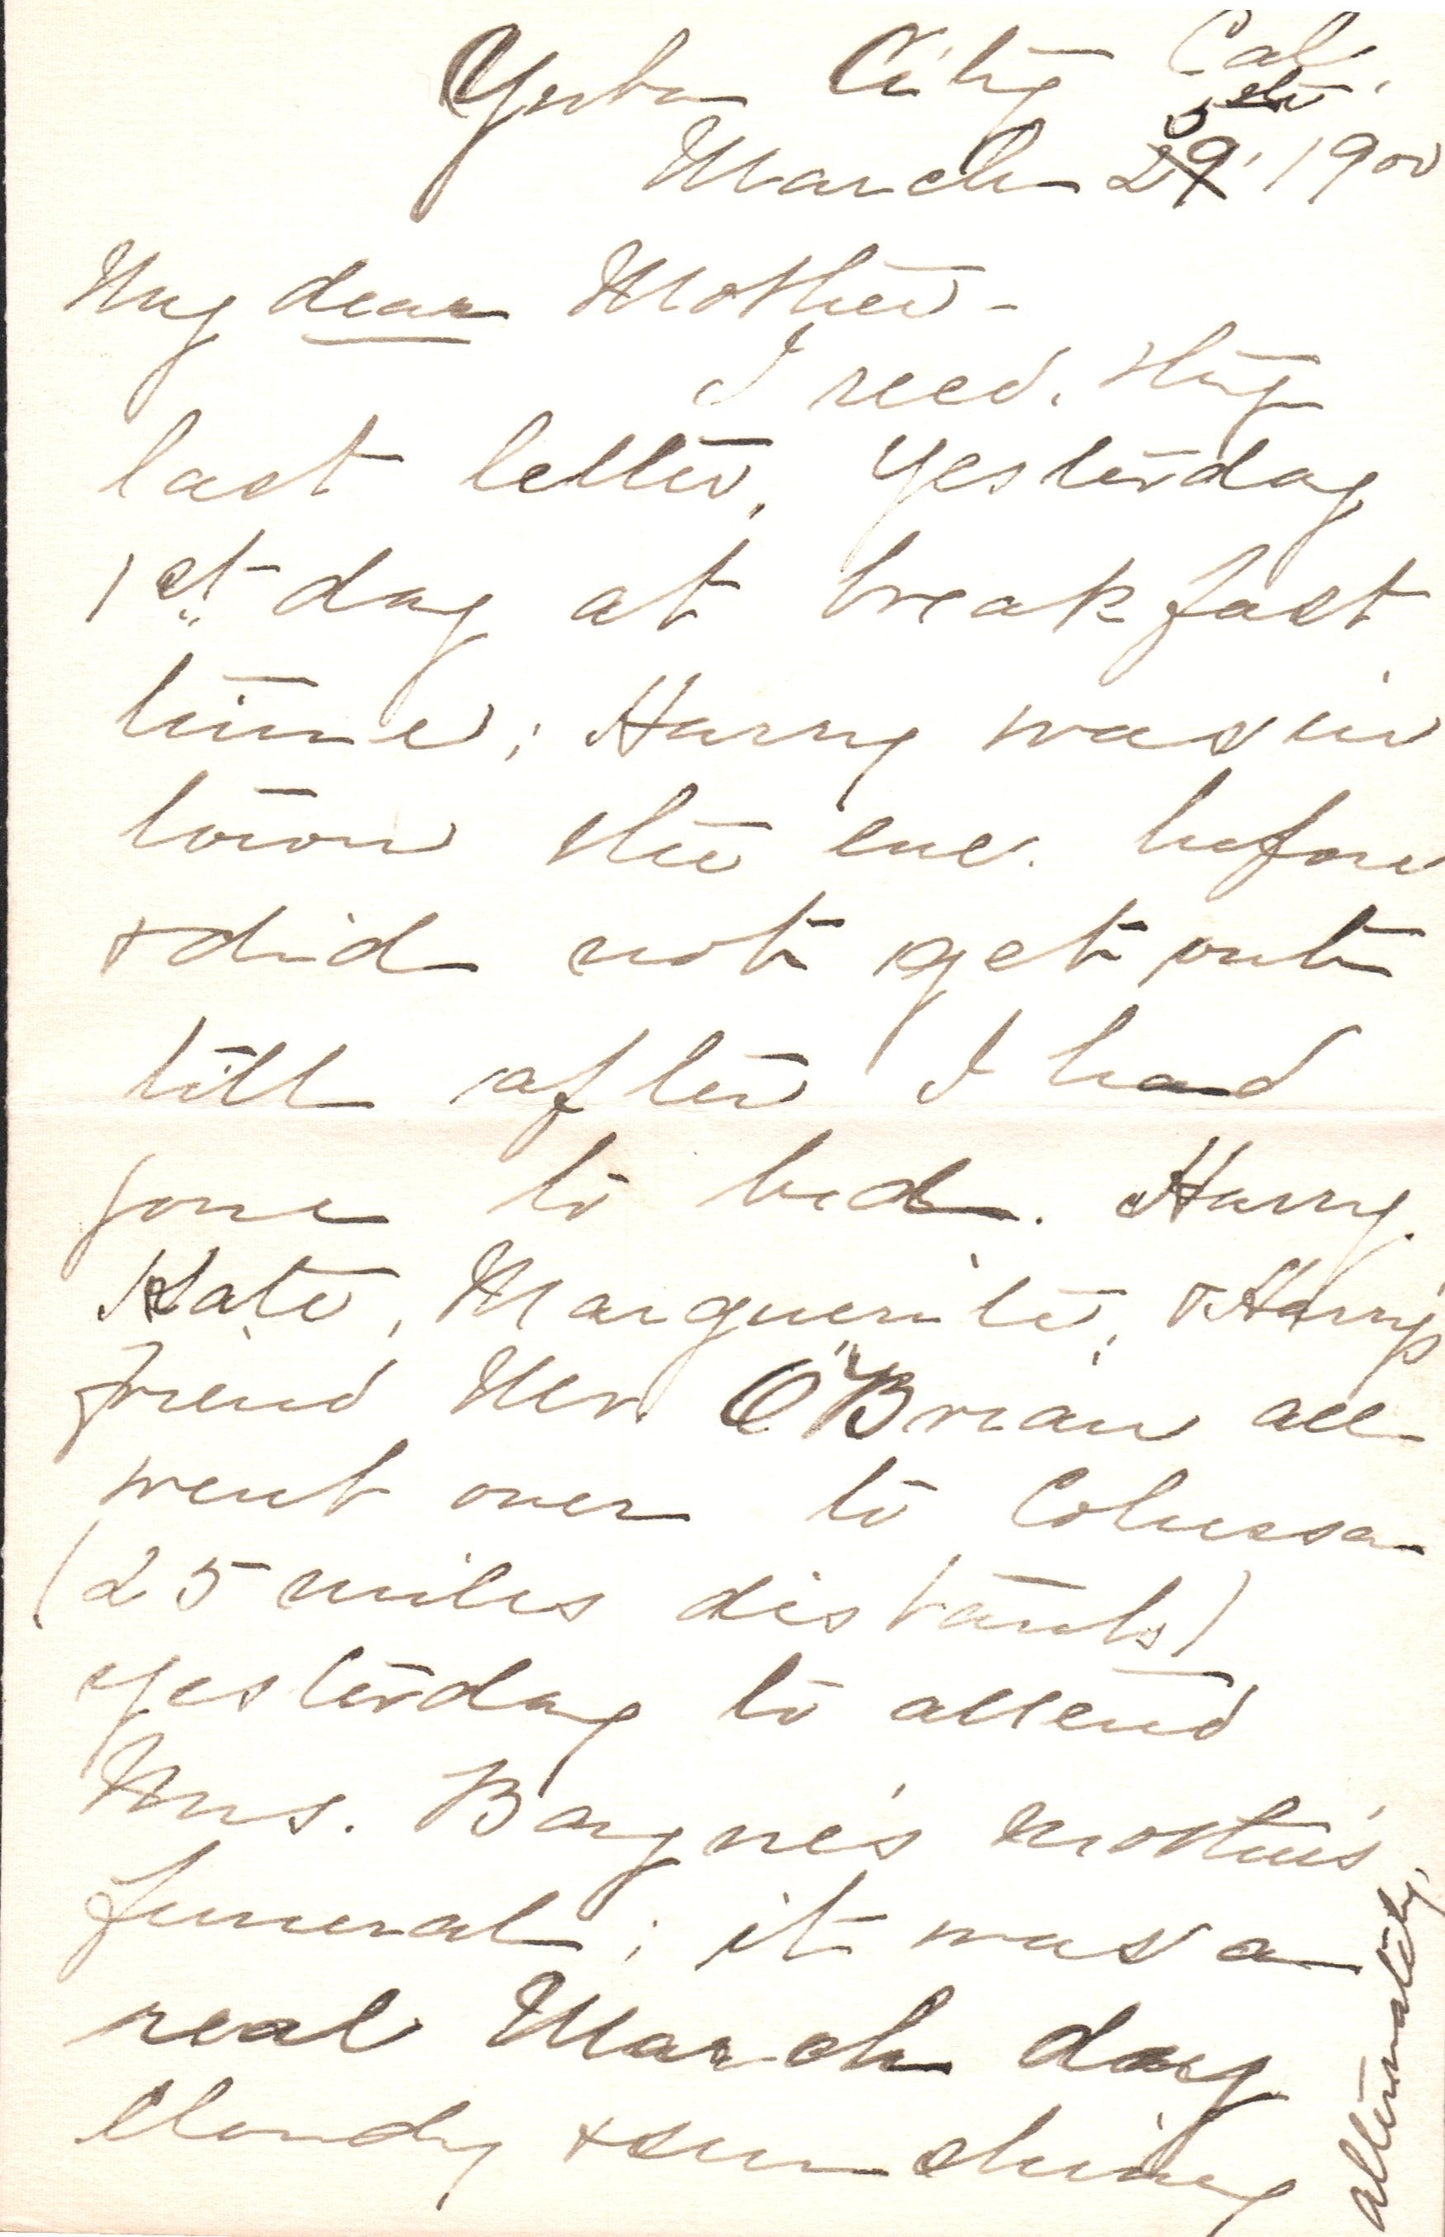 Yuba City Cal.
5th
March 29, 1900
My dear Mother -
I recd. thy
last letter, yesterday
1st day at breakfast
time; Harry was in
town the eve. before
& did not get out
till after I had
gone to bed. Harry,
Kate, Marguerite, & Harry's
friend Mr. O'Brian all
went over to Colussa
(25 miles distant)
yesterday to attend
Mrs. Bayne's mother's
funeral; it was a
real March day
cloudy & sun shiny
alternately.